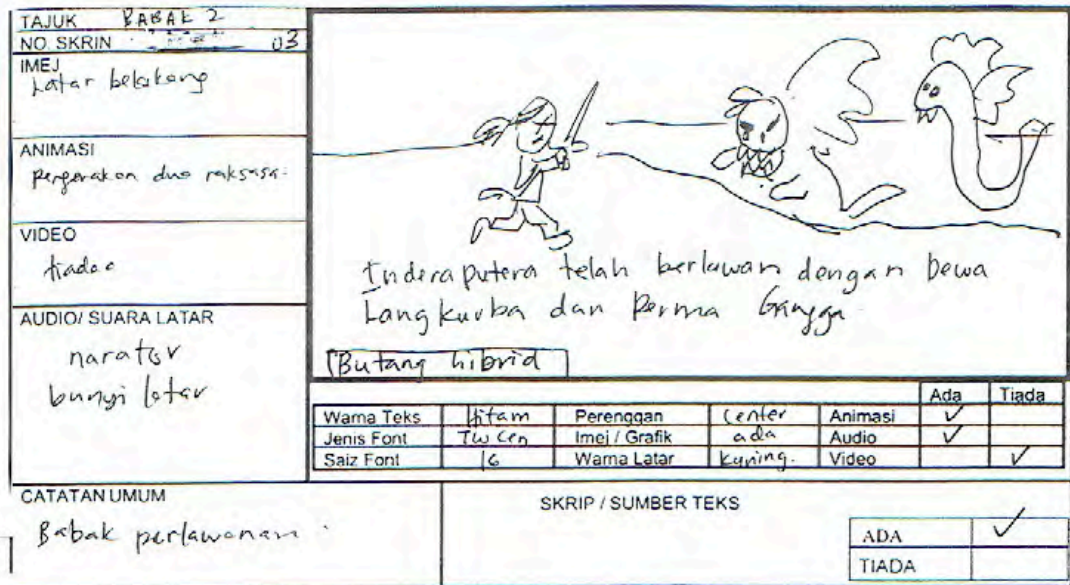 TAJUK BABAK 2
NO. SKRIN 03
IMEJ
Latar belakang
ANIMASI
pergerakan dua raksasa.
VIDEO
tiada
AUDIO/ SUARA LATAR
narator
bunyi latar
Inderaputera telah berlawan dengan Dewa
Langkurba dan Perma Gangga
Butang hibrid
Ada Tiada
Warna Teks hitam Perenggan center Animasi ✓
Jenis Font Tw Cen Imej / Grafik ada Audio ✓
Saiz Font 16 Warna Latar kuning. Video ✓
CATATAN UMUM
Babak perlawanan
SKRIP / SUMBER TEKS
ADA ✓
TIADA